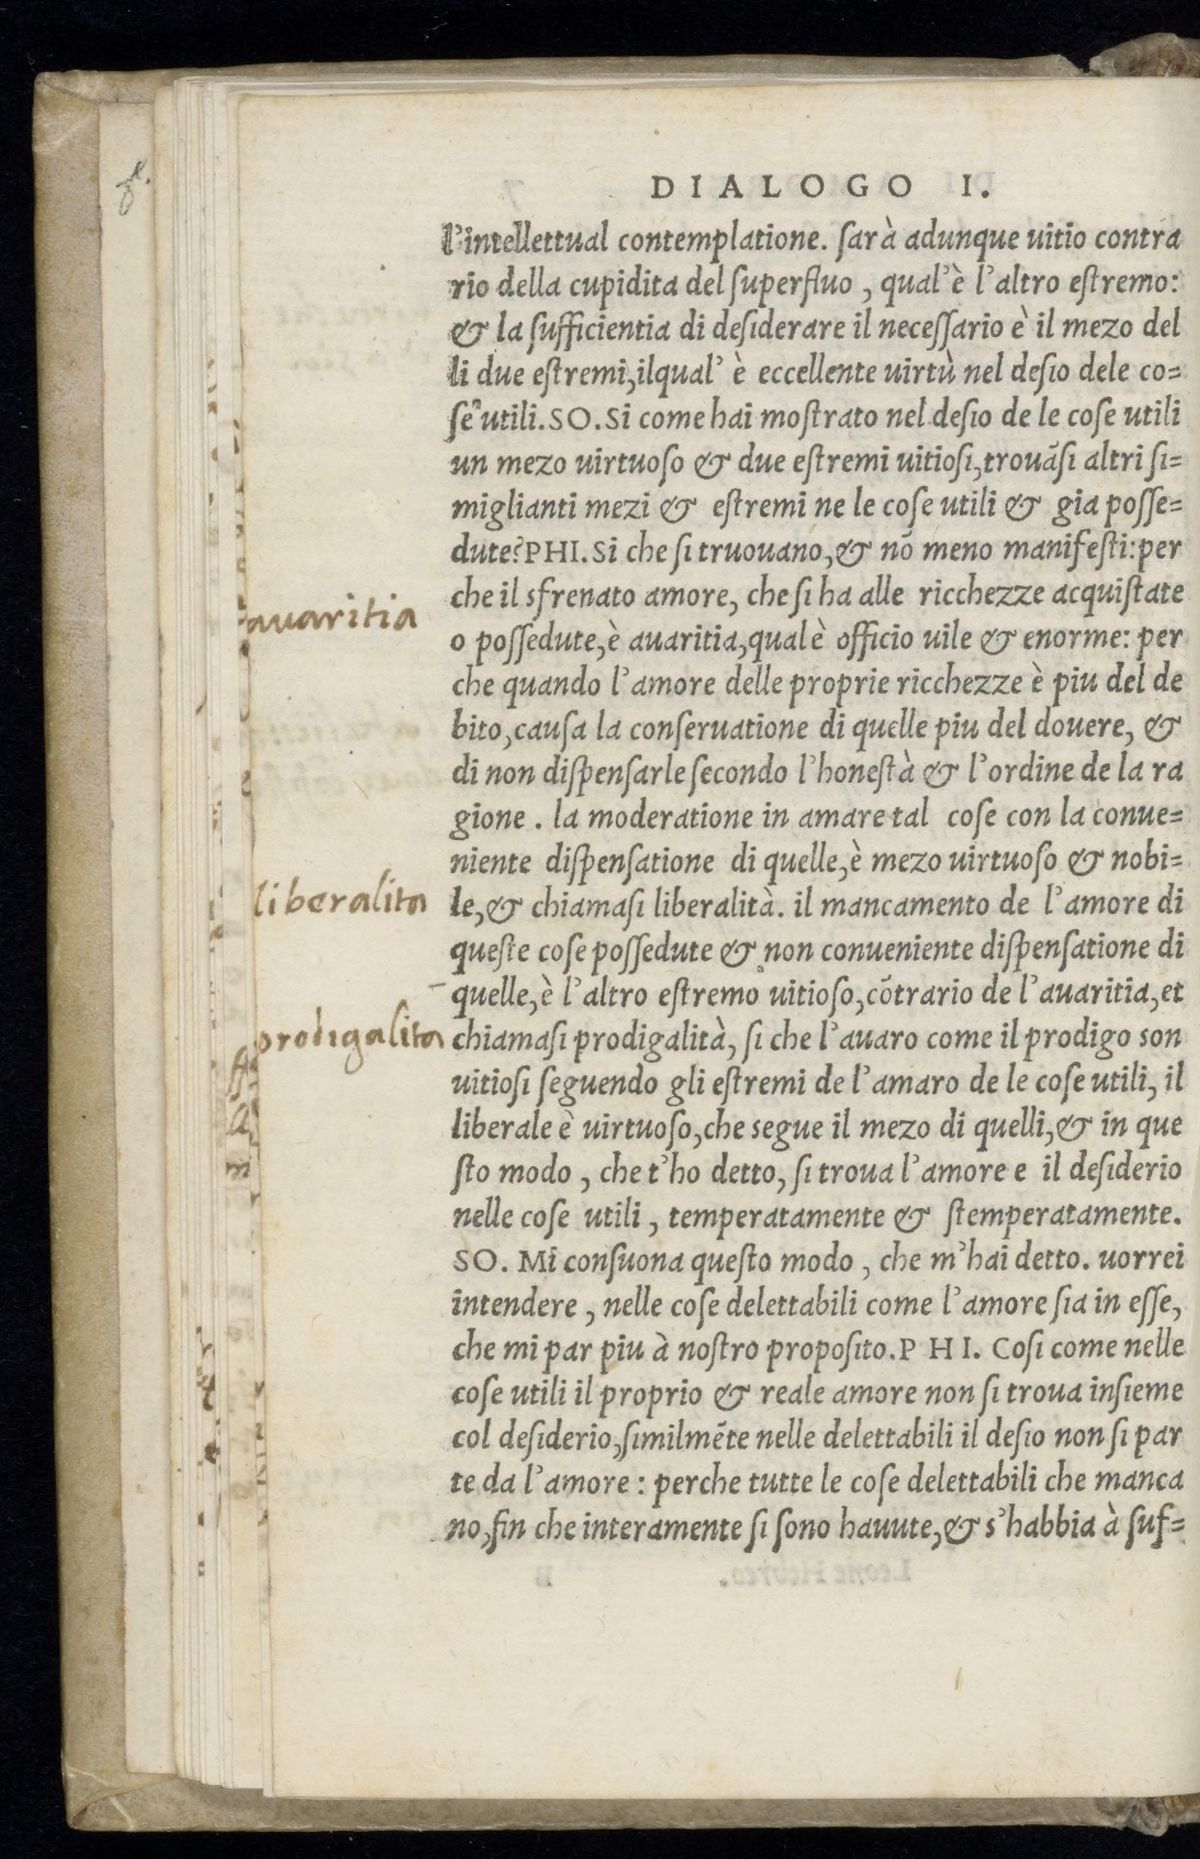 DIALOGO I.
l'intellettual contemplatione. ſarà adunque uitio contra
rio della cupidita del ſuperfluo, qual'è l'altro eſtremo:
& la ſufficientia di deſiderare il neceſſario è il mezo del
li due eſtremi, ilqual' è eccellente uirtù nel deſio dele co=
ſe utili. SO. Si come hai moſtrato nel deſio de le coſe utili
un mezo uirtuoſo & due eſtremi uitioſi, trouãſi altri ſi=
miglianti mezi & eſtremi ne le coſe utili & gia poſſe=
dute? PHI. Si che ſi truouano, & nõ meno manifeſti: per
che il sfrenato amore, che ſi ha alle ricchezze acquiſtate
auaritia
o poſſedute, è auaritia, qual è officio uile & enorme: per
che quando l'amore delle proprie ricchezze è piu del de
bito, cauſa la conſeruatione di quelle piu del douere, &
di non diſpenſarle ſecondo l'honeſtà & l'ordine de la ra
gione. la moderatione in amare tal coſe con la conue=
niente diſpenſatione di quelle, è mezo uirtuoſo & nobi=
liberalita
le, & chiamaſi liberalità. il mancamento de l'amore di
queſte coſe poſſedute & non conueniente diſpenſatione di
quelle, è l'altro eſtremo uitioſo, cõtrario de l'auaritia, et
prodigalita
chiamaſi prodigalità, ſi che l'auaro come il prodigo son
uitioſi ſeguendo gli eſtremi de l'amaro de le coſe utili, il
liberale è uirtuoſo, che segue il mezo di quelli, & in que
ſto modo, che t'ho detto, ſi troua l'amore e il deſiderio
nelle coſe utili, temperatamente & ſtemperatamente.
SO. Mi conſuona queſto modo, che m'hai detto. uorrei
intendere, nelle coſe delettabili come l'amore ſia in eſſe,
che mi par piu à noſtro propoſito. PHI. Coſi come nelle
coſe utili il proprio & reale amore non ſi troua inſieme
col deſiderio, ſimilmẽte nelle delettabili il deſio non ſi par
te da l'amore: perche tutte le coſe delettabili che manca
no, fin che interamente ſi ſono hauute, & s'habbia à ſuf=